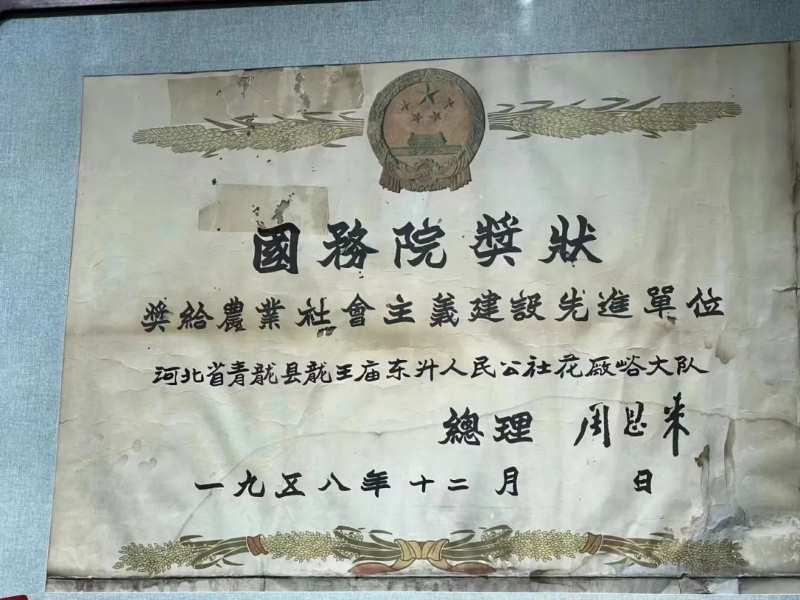 國務院獎狀
獎給農業社會主義建設先進單位
河北省青龍县龍王庙东升人民公社花厰峪大队
總理 周恩来
一九五八年十二月 日